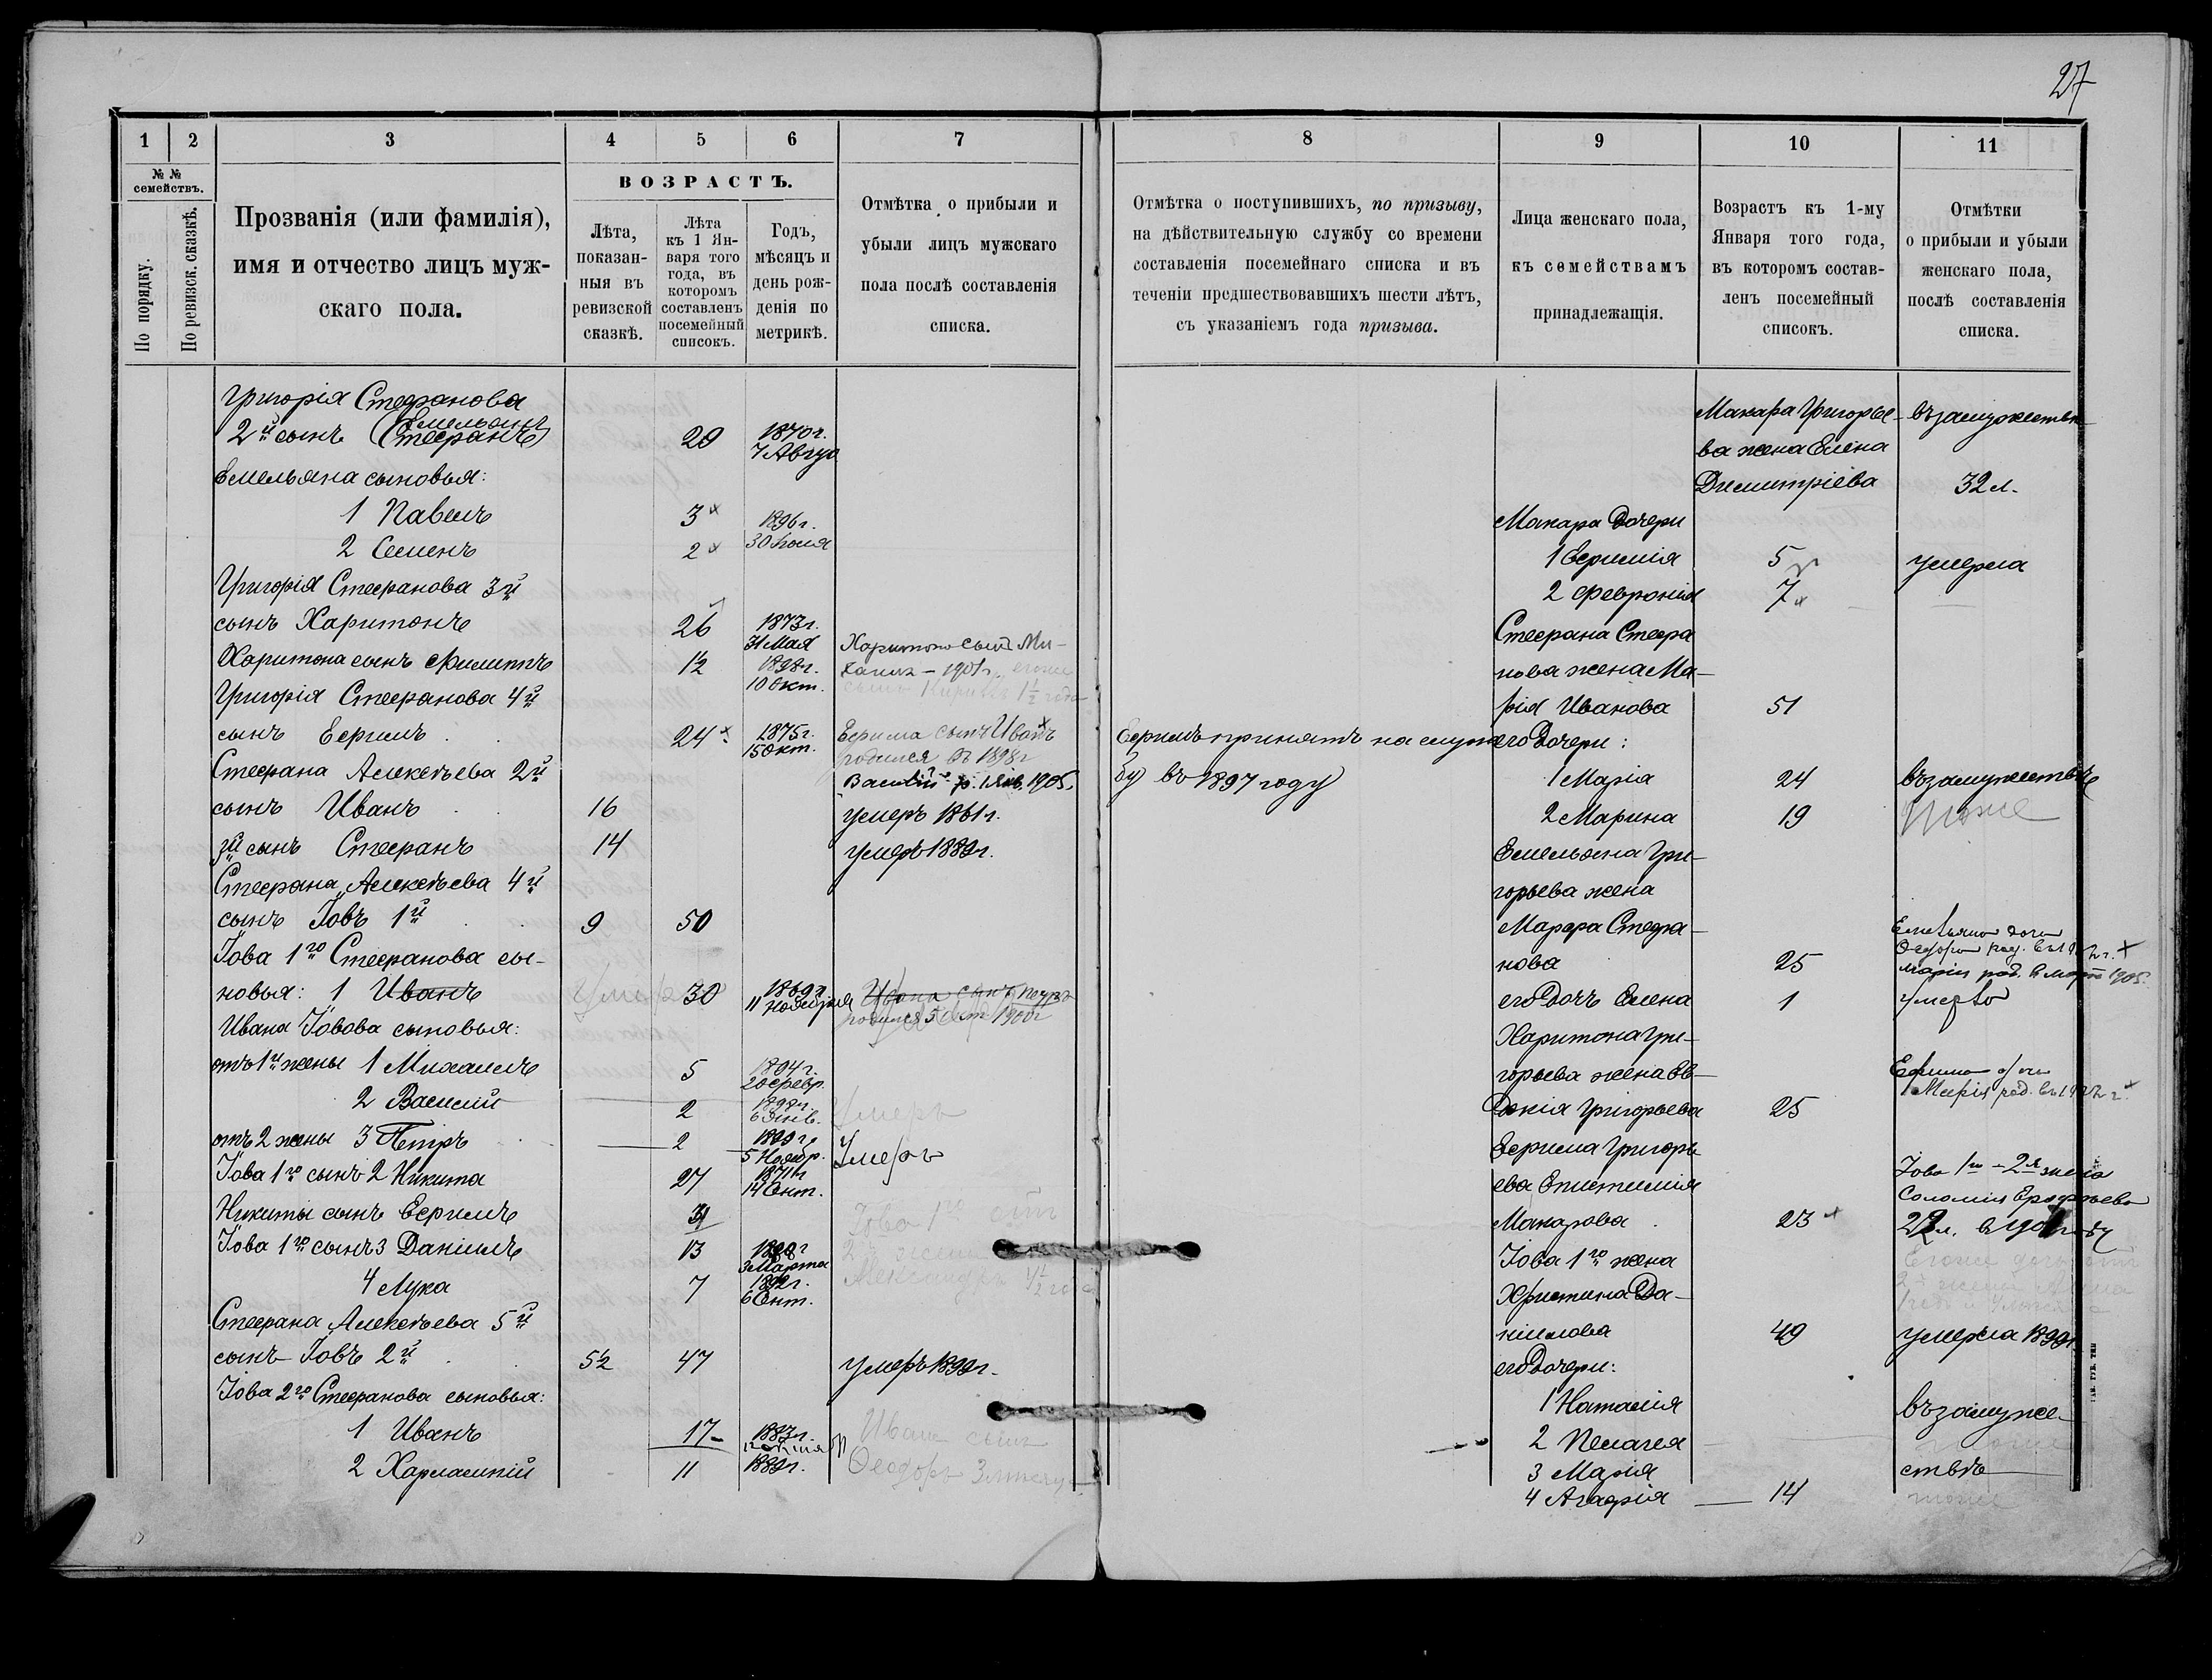 27
1 2 3 4 5 6 7
№ № семействъ.
По порядку.
По ревизск. сказкѣ.
Прозванія (или фамилія),
имя и отчество лицъ муж-
скаго пола.
ВОЗРАСТЪ.
Лѣта,
показан-
ныя въ
ревизской
сказкѣ.
Лѣта
къ 1 Ян-
варя того
года, въ
которомъ
составленъ
посемейный
списокъ.
Годъ,
мѣсяцъ и
день рож-
денія по
метрикѣ.
Отмѣтка о прибыли и
убыли лицъ мужскаго
пола послѣ составленія
списка.
Григорія Стефанова
Емельянъ
2й сынъ (Стефанъ) 29 1870г.
7 Авгус
Емельяна сыновья:
1 Павелъ 3 x 1896г.
2 Семенъ 2 x 30 Іюля
Григорія Стефанова 3й
сынъ Харитонъ 26 1873г.
31 Мая Харитона сынъ Ми-
Харитона сынъ Филиппъ 1½ 1898г. хаилъ - 1901г. егоже
10 Окт. сынъ Кириллъ 1½ года
Григорія Стефанова 4й
сынъ Ефимъ 24 x 1875г. Ефима сынъ Иванъ x
15 Окт. родился въ 1898г
Стефана Алексѣева 2й
Василій р. 1 Янв. 1905.
сынъ Иванъ 16 умеръ 1861г.
3й сынъ Стефанъ 14 умеръ 1889г.
Стефана Алексѣева 4й
сынъ Іовъ 1й 9 50
Іова 1го Стефанова сы-
новья: 1 Иванъ Умеръ 30 1869г. Ивана сынъ Петръ
11 Ноября родился 5 1900г
Ивана Іовова сыновья:
отъ 1й жены 1 Михаилъ 5 1894г.
20 Февр.
2 Василій 2 1898г. Умеръ
6 Янв.
отъ 2 жены 3 Петръ 2 1899г. Умеръ
5 Ноябр.
Іова 1го сынъ 2 Никита 27 1871г
14 Сент.
Никиты сынъ Ефимъ
Іова 1го
Іова 1го сынъ 3 Даніилъ 13
3 Марта 2й жены
4 Лука 7 1892г. Александръ 4½ года
6 Сент.
Стефана Алексѣева 5й
сынъ Іовъ 2й 5½ 47 умеръ 1899г.
Іова 2го Стефанова сыновья:
1 Иванъ 17 1883г. Ивана сынъ
2 Харлампій 11 1889г. Ѳеодоръ
8 9 10 11
Отмѣтка о поступившихъ, по призыву,
на дѣйствительную службу со времени
составленія посемейнаго списка и въ
теченіи предшествовавшихъ шести лѣтъ,
съ указаніемъ года призыва.
Лица женскаго пола,
къ семействамъ
принадлежащія.
Возрастъ къ 1-му
Января того года,
въ которомъ состав-
ленъ посемейный
списокъ.
Отмѣтки
о прибыли и убыли
женскаго пола,
послѣ составленія
списка.
Макара Григорье- въ замужествѣ
ва жена Елена
Димитріева 32 л.
Макара дочери
1 Ефимія 5 умерла
2 Февронія 7 x
Стефана Стефа
нова жена Ма-
рія Иванова 51
Ефимъ принятъ на служ его дочери:
бу въ 1897 году 1 Марія 24 въ замужествѣ
2 Марина 19 тоже
Емельяна Гри-
горьева жена
Марфа Стефа-
Емельяна дочь
Ѳедора род. въ 1902г. x
нова 25 Марія род. въ Мартѣ 1905.
его дочь Елена 1 умерла
Харитона Гри-
горьева жена Ев- Ефима дочь
Марія род. въ 1902г. x
докія Григорьева 25
Ефима Григорь
ева Епистимія Іова 1го - 2я жена
Соломія Ерофѣева
Макарова 23 x
Іова 1го жена Егоже дочь отъ
Христина Да- 2й жены
ніилова 49 умерла 1899г.
его дочери:
1 Наталія въ замуже-
2 Пелагея
3 Марія ствѣ
4 Агафія 14 тоже